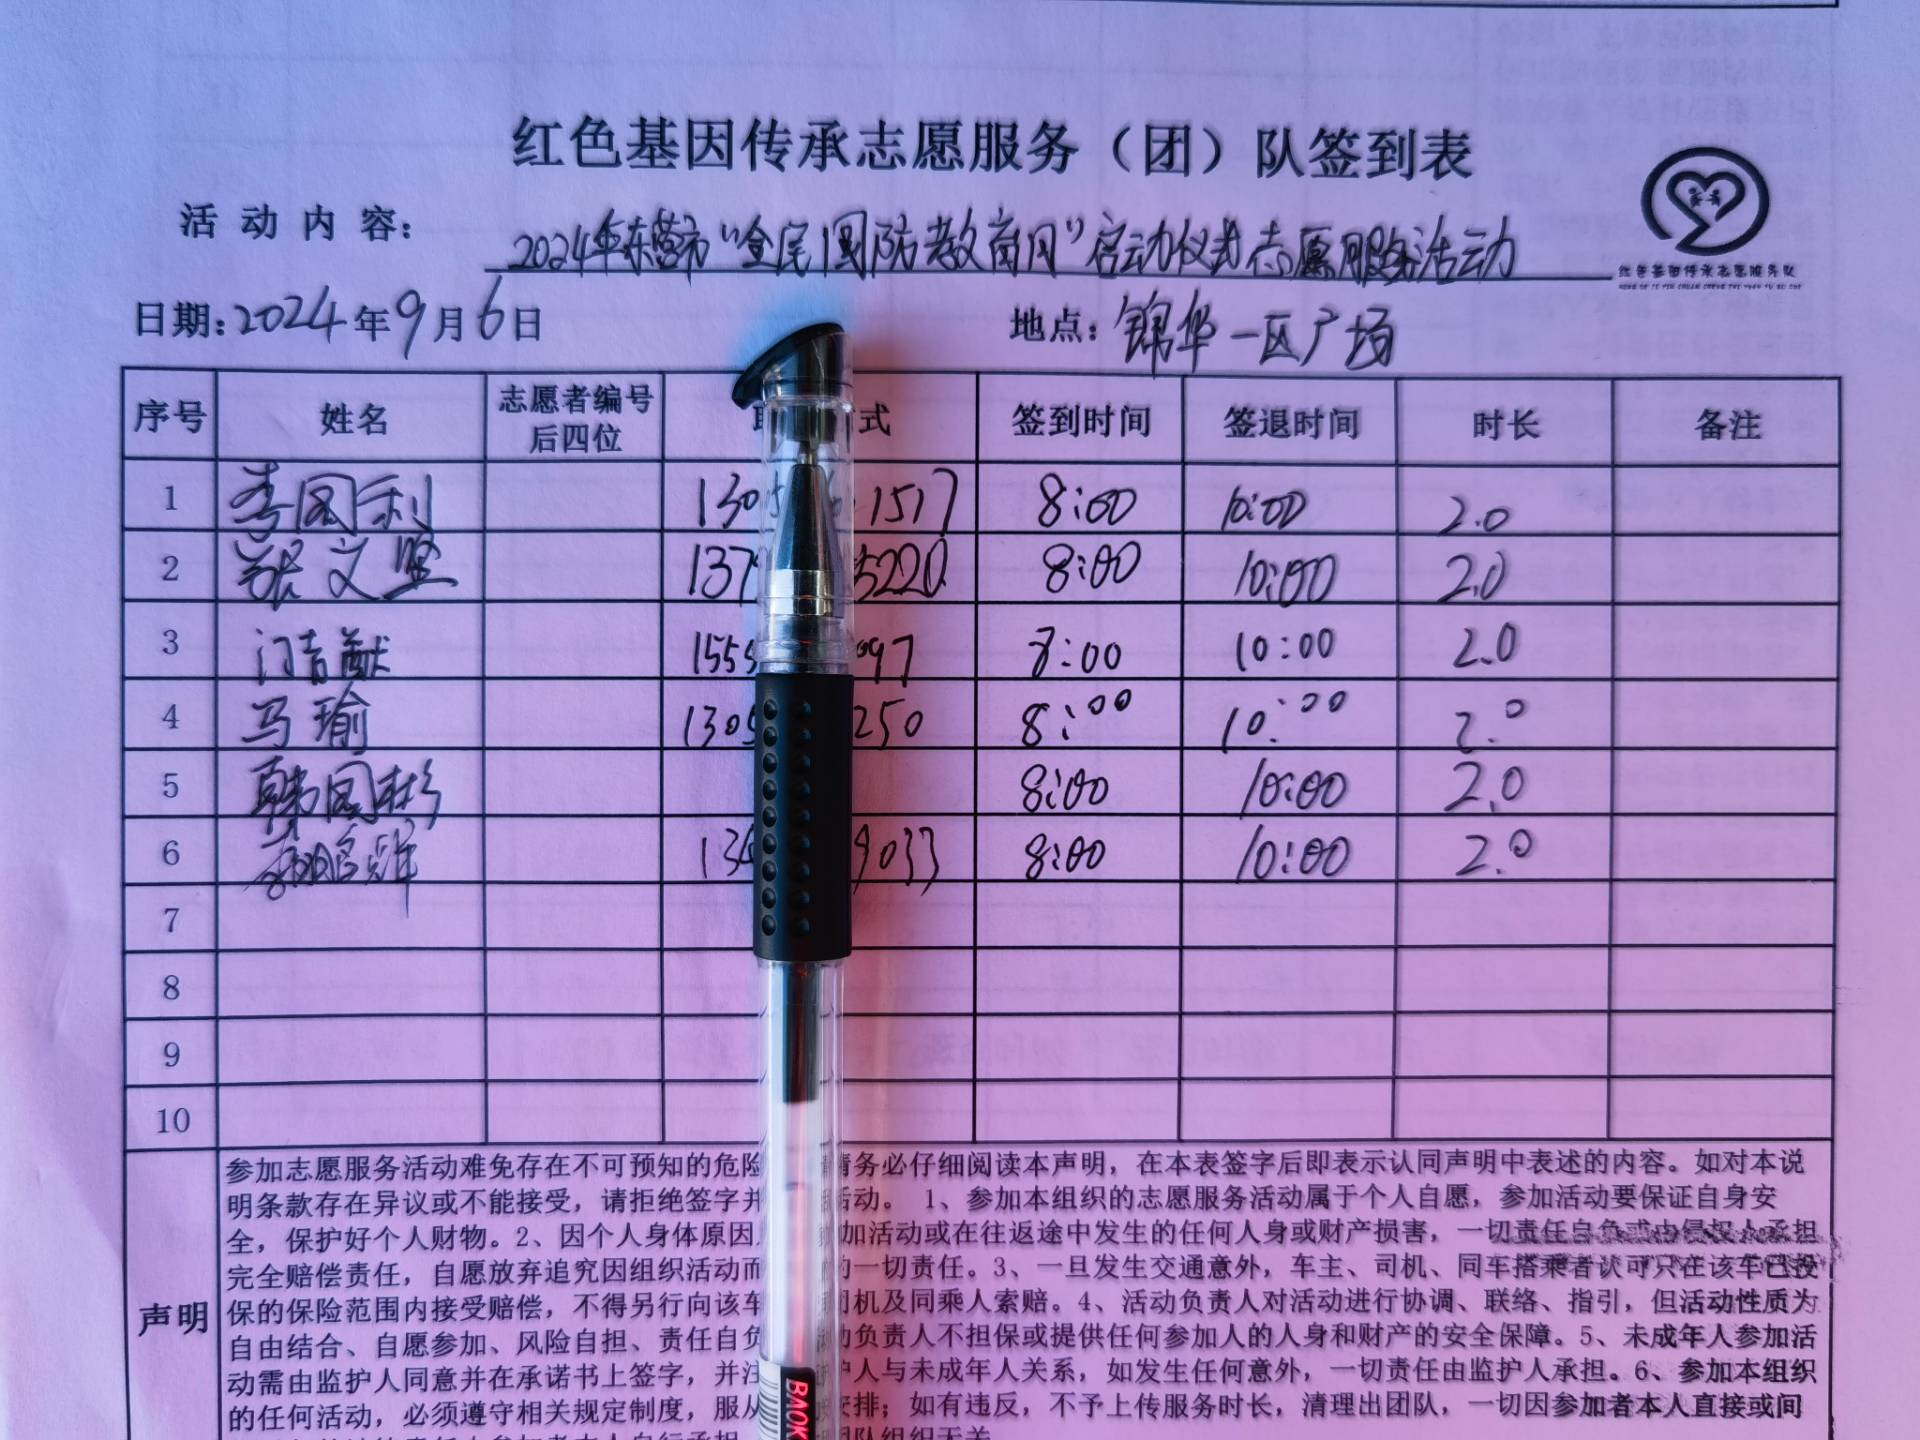 红色基因传承志愿服务（团）队签到表
活动内容：2024年东营市“全民国防教育月”启动仪式志愿服务活动
红色基因传承志愿服务队
日期:2024年9月6日 地点：锦华一区广场
序号 姓名 志愿者编号后四位 式 签到时间 签退时间 时长 备注
1 李国利 1305 1517 8:00 10:00 2.0
2 张文 137 5220 8:00 10:00 2.0
3 1555 097 8:00 10:00 2.0
4 马瑜 1305 250 8:00 10:00 2.0
5 韩国彬 8:00 10:00 2.0
6 136 9033 8:00 10:00 2.0
7
8
9
10
声明
参加志愿服务活动难免存在不可预知的危险 请务必仔细阅读本声明，在本表签字后即表示认同声明中表述的内容。如对本说
明条款存在异议或不能接受，请拒绝签字并 活动。 1、参加本组织的志愿服务活动属于个人自愿，参加活动要保证自身安
全，保护好个人财物。2、因个人身体原因 加活动或在往返途中发生的任何人身或财产损害，一切责任自负或由侵权人承担
完全赔偿责任，自愿放弃追究因组织活动而 的一切责任。3、一旦发生交通意外，车主、司机、同车搭乘者认可只在该车已投
保的保险范围内接受赔偿，不得另行向该车 司机及同乘人索赔。4、活动负责人对活动进行协调、联络、指引，但活动性质为
自由结合、自愿参加、风险自担、责任自负 动负责人不担保或提供任何参加人的人身和财产的安全保障。5、未成年人参加活
动需由监护人同意并在承诺书上签字，并注 护人与未成年人关系，如发生任何意外，一切责任由监护人承担。6、参加本组织
的任何活动，必须遵守相关规定制度，服从 安排；如有违反，不予上传服务时长，清理出团队，一切因参加者本人直接或间
BAOK